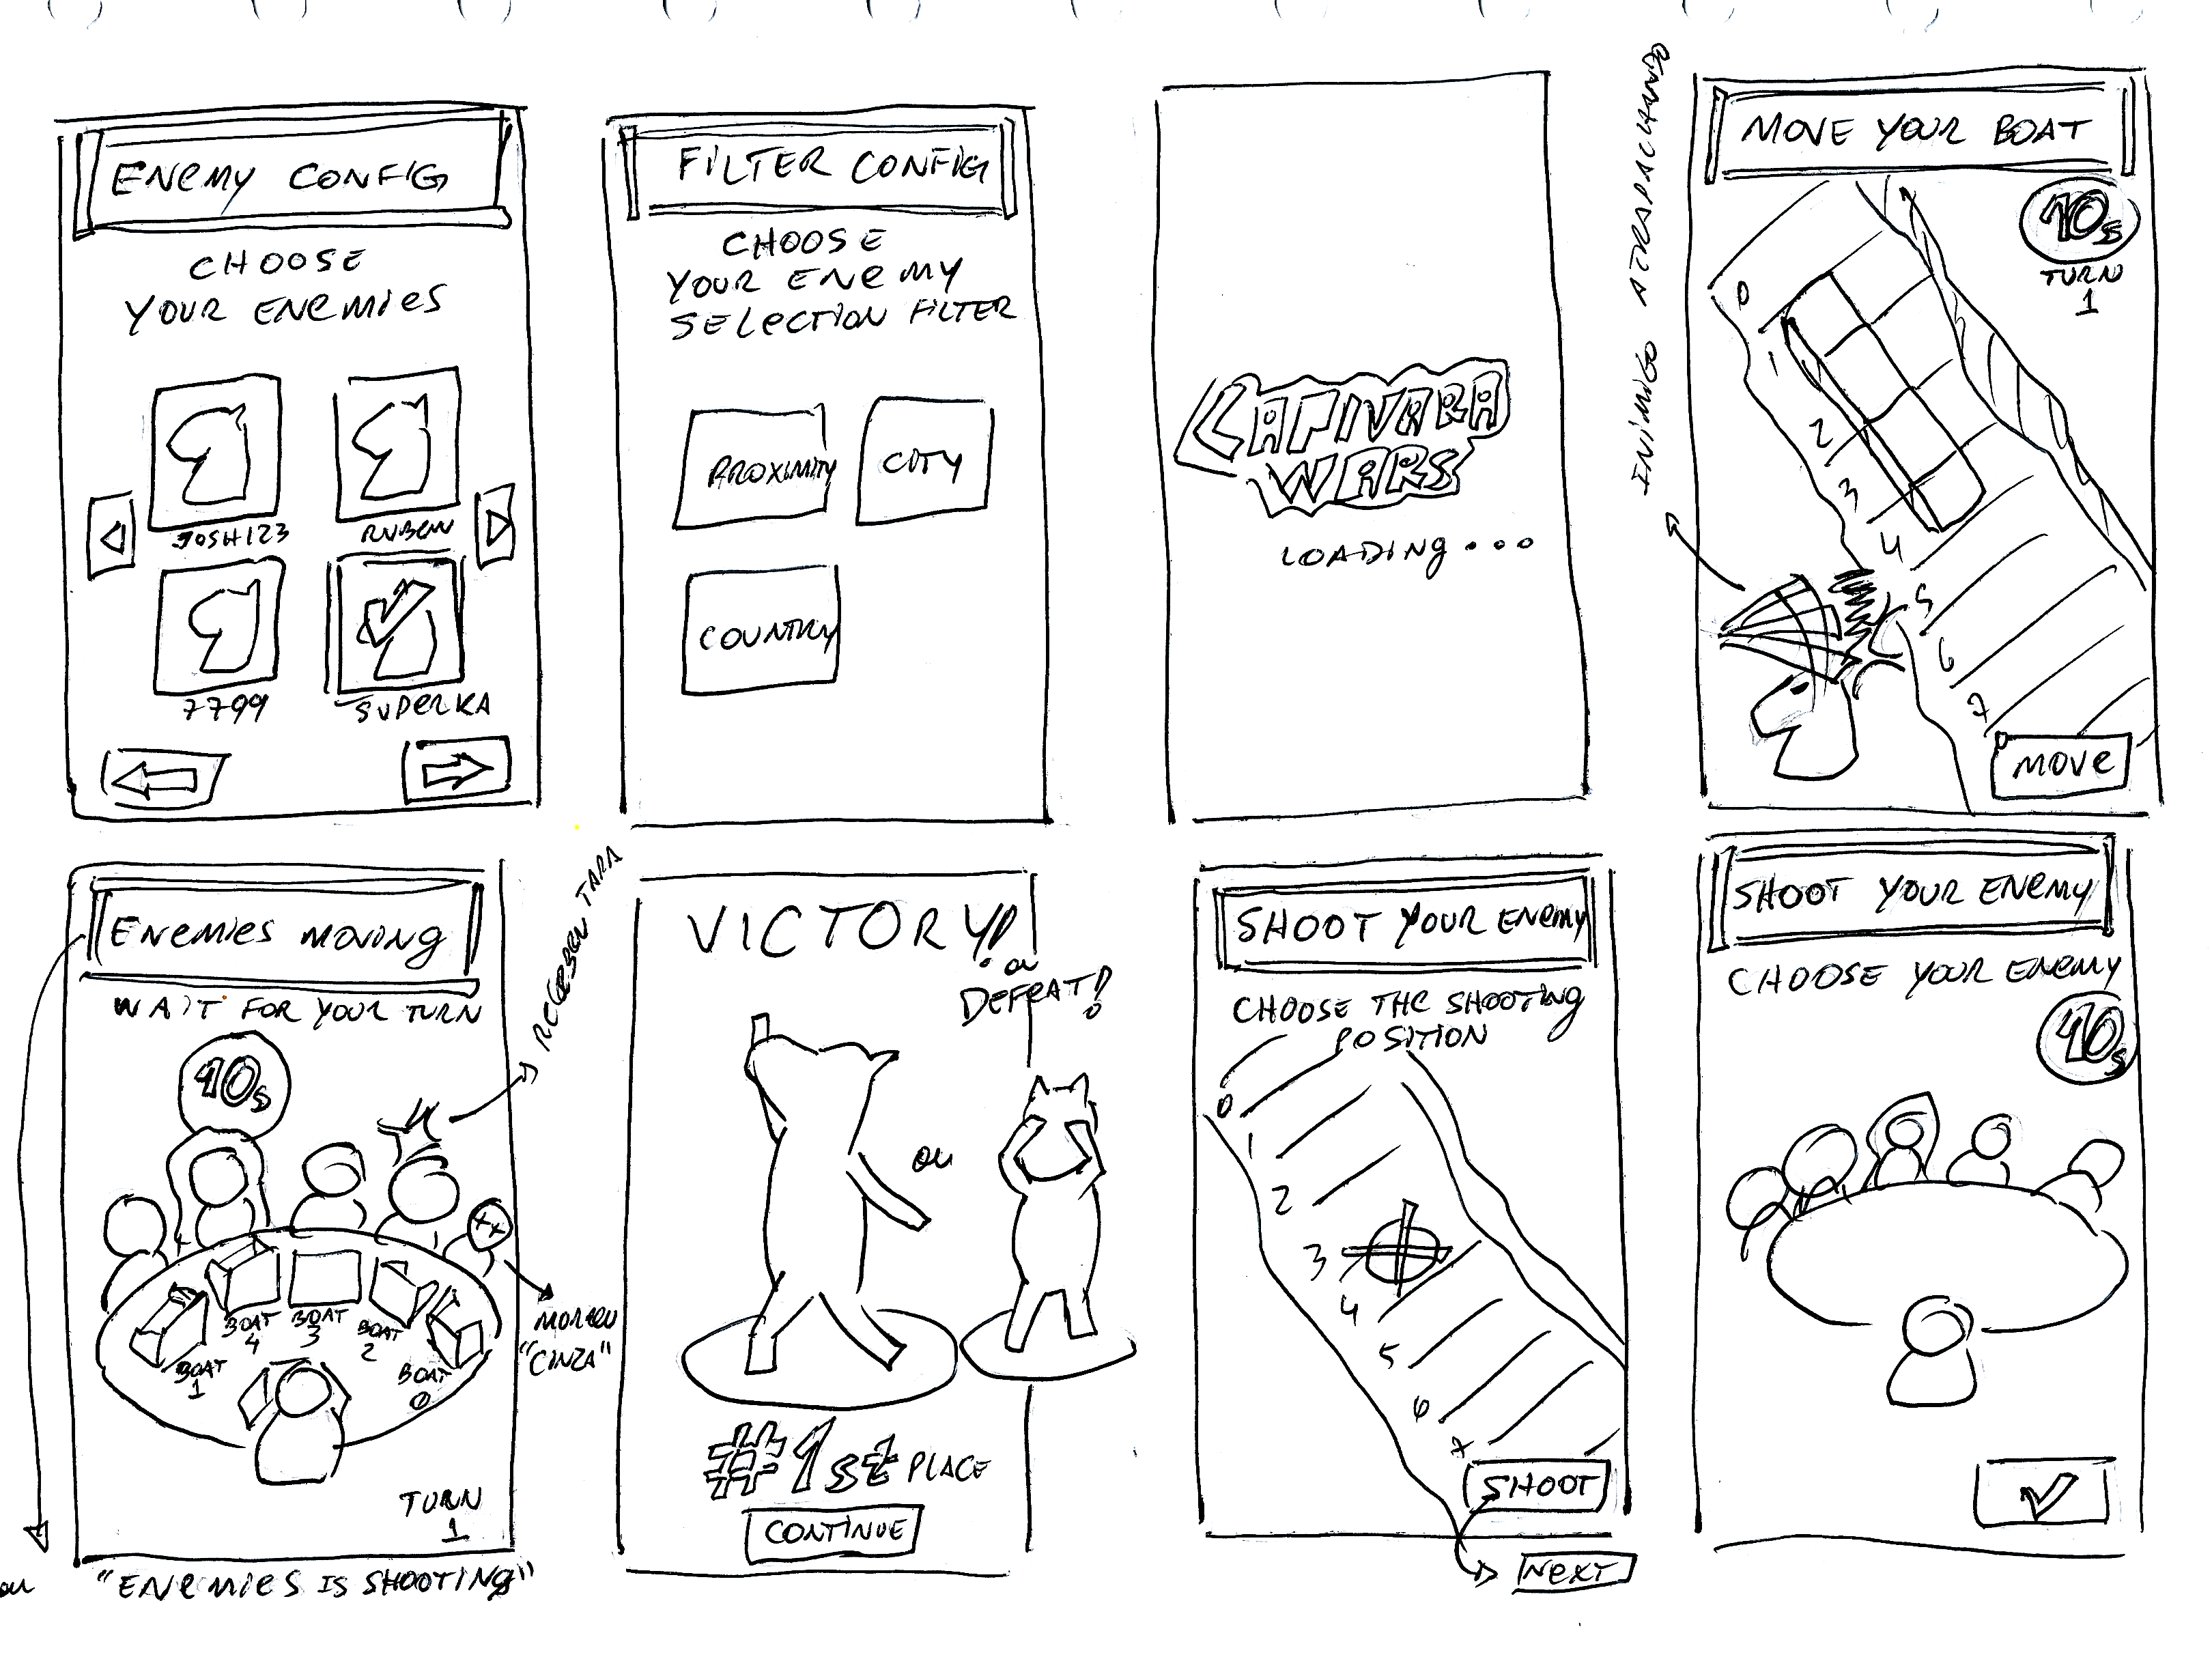 ENEMY CONFIG
CHOOSE
YOUR ENEMIES
JOSH123
RUBEN
7799
SUPERKA
FILTER CONFIG
CHOOSE
YOUR ENEMY
SELECTION FILTER
PROXIMITY
CITY
COUNTRY
CAPIVARA
WARS
LOADING...
INIMIGO ATRAPALHANDO
MOVE YOUR BOAT
10s
TURN
1
0
1
2
3
4
5
6
7
MOVE
ENEMIES MOVING
WAIT FOR YOUR TURN
10s
BOAT
1
BOAT
4
BOAT
3
BOAT
2
BOAT
0
MORREU
"CINZA"
TURN
1
ou
"ENEMIES IS SHOOTING"
VICTORY!
ou
DEFEAT!
ou
#1st PLACE
CONTINUE
SHOOT YOUR ENEMY
CHOOSE THE SHOOTING
POSITION
0
1
2
3
4
5
6
7
SHOOT
NEXT
SHOOT YOUR ENEMY
CHOOSE YOUR ENEMY
10s